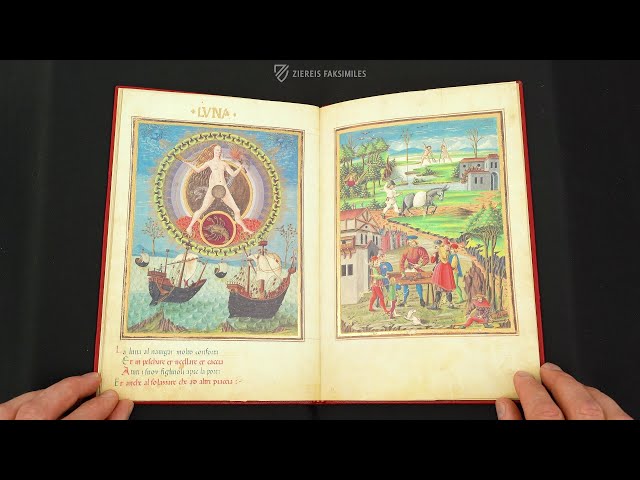 ZIEREIS FAKSIMILES
·LVNA·
La luna al nauigar molto conforta
Et in peschare et ucellare et caccia
A tuti i suoi figliuoli apre la porta
Et anche al solazzare che ad altri piaccia